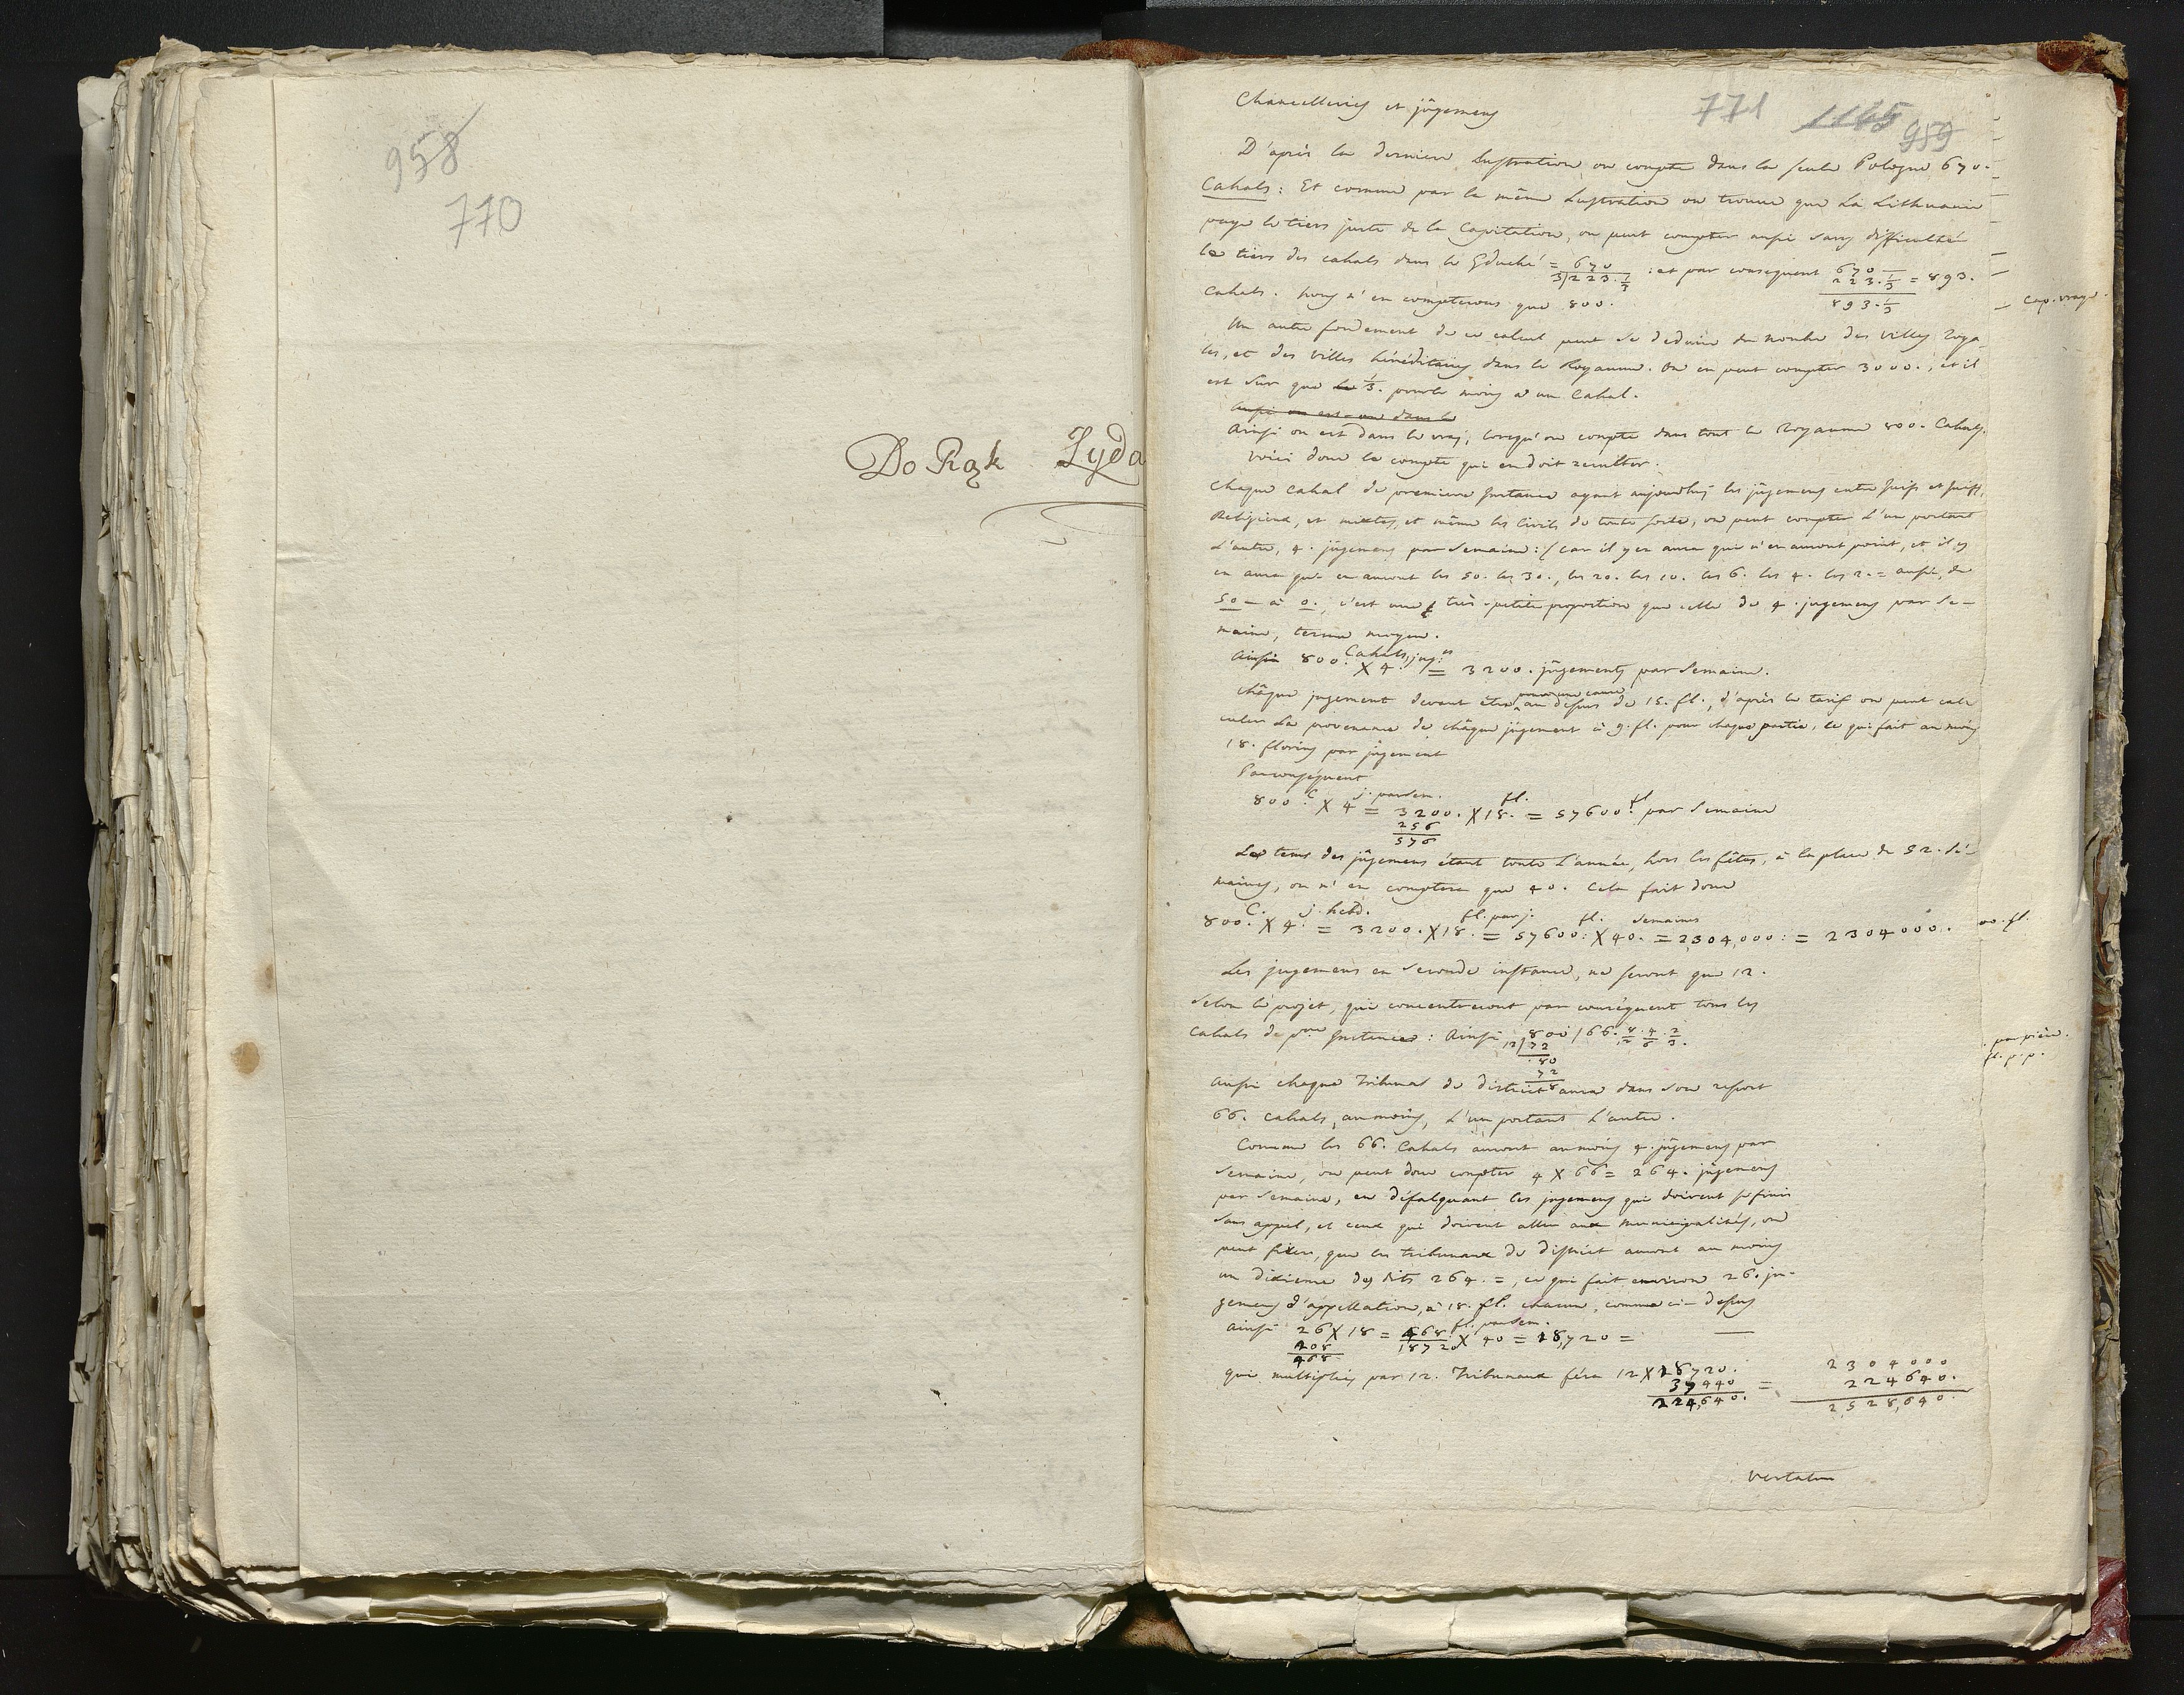 958
770
Do Rąk Żyda
771 1145 959
Chancelleries et jûgemens
D'après la derniere Lustration on compte dans la seule Pologne 670.
Cahals: Et comme par la même Lustration on trouve que La Lithuanie
paye le tiers juste de la Capitation, on peut compter aussi sans difficulté
le tiers des cahals dans le Gduché = 670 : et par consequent 670 = 893.
3/223.⅓ 223.⅓
893.⅓
Cahals. nous n'en compterons que 800.
cap. vraye.
Un autre fondement de ce calcul peut se deduire du nombre des villes roya-
les, et des villes héréditaires dans le Royaume. On en peut compter 3000., et il
est sur que le ⅓. pour le moins a un Cahal.
Aussi on est dans le
Ainsi on est dans le vrai, lorsqu'on compte dans tout le royaume 800. Cahals.
voici donc le compte qui en doit resulter.
Chaque Cahal de premiere Instance ayant aujourdhuj les jûgemens entre Juifs et Juifs,
Religieux, et mixtes, et même les Civils de toute sorte, on peut compter L'un portant
L'autre, 4. jûgemens par Semaine: / car il y en aura qui n'en auront point, et il y
en aura qui en auront les 50. les 30., les 20. les 10. les 6. les 4. les 2. = aussi, de
50 - à 0., c'est une très-petite proportion que celle de 4. jugemens par Se-
maine, terme moyen.
Ainsi 800. Cahals X 4. jug.ns = 3200. jûgements par Semaine.
Châque jugement devant être pour une cause au dessus de 15. fl., d'après le tarif on peut cal-
culer La provenance de châque jûgement à 9. fl. pour chaque partie, ce qui fait au moins
18. florins par jûgement
Parconséquent
800. C X 4 j. par sem. = 3200. X 18. fl. = 57600. fl par Semaine
256
576
Le tems des jûgemens étant toute L'année, hors les fêtes, à la place de 52. Se-
maines, on n'en comptera que 40. Cela fait donc
C. j. hebd. fl. par j. fl. Semaines
800. X 4. = 3200. X 18. = 57600. X 40. = 2,304,000: = 2304000.
00. fl.
Les jugemens en Seconde instance, ne seront que 12.
Selon le projet, qui concentreront par conséquent tous les
Cahals de p.ere Instance: Ainsi 800/66. 8/12. 4/6. 2/3.
12/72
80
72
8
Aussi chaque Tribunal de district aura dans son ressort
66. cahals, au moins, L'un portant L'autre.
Comme les 66. Cahals auront au moins 4. jûgemens par
Semaine, on peut donc compter 4 X 66 = 264. jûgemens
par Semaine, en défalquant les jugemens qui doivent se finir
Sans appel, et ceux qui doivent aller aux Municipalités, on
peut fixer, que les tribunaux de district auront au moins
un dixieme des dits 264. =, ce qui fait environ 26. ju-
gemens d'appellation, à 18. fl. chacun, comme ci-dessus
Ainsi 26 X 18 = 468 fl. par sem. X 40 = 18,720 =
208 18720
468.
qui multipliés par 12. Tribunaux féra 12 X 18720. 2304000
37440 = 224640.
224,640. 2,528,640.
Vertatur